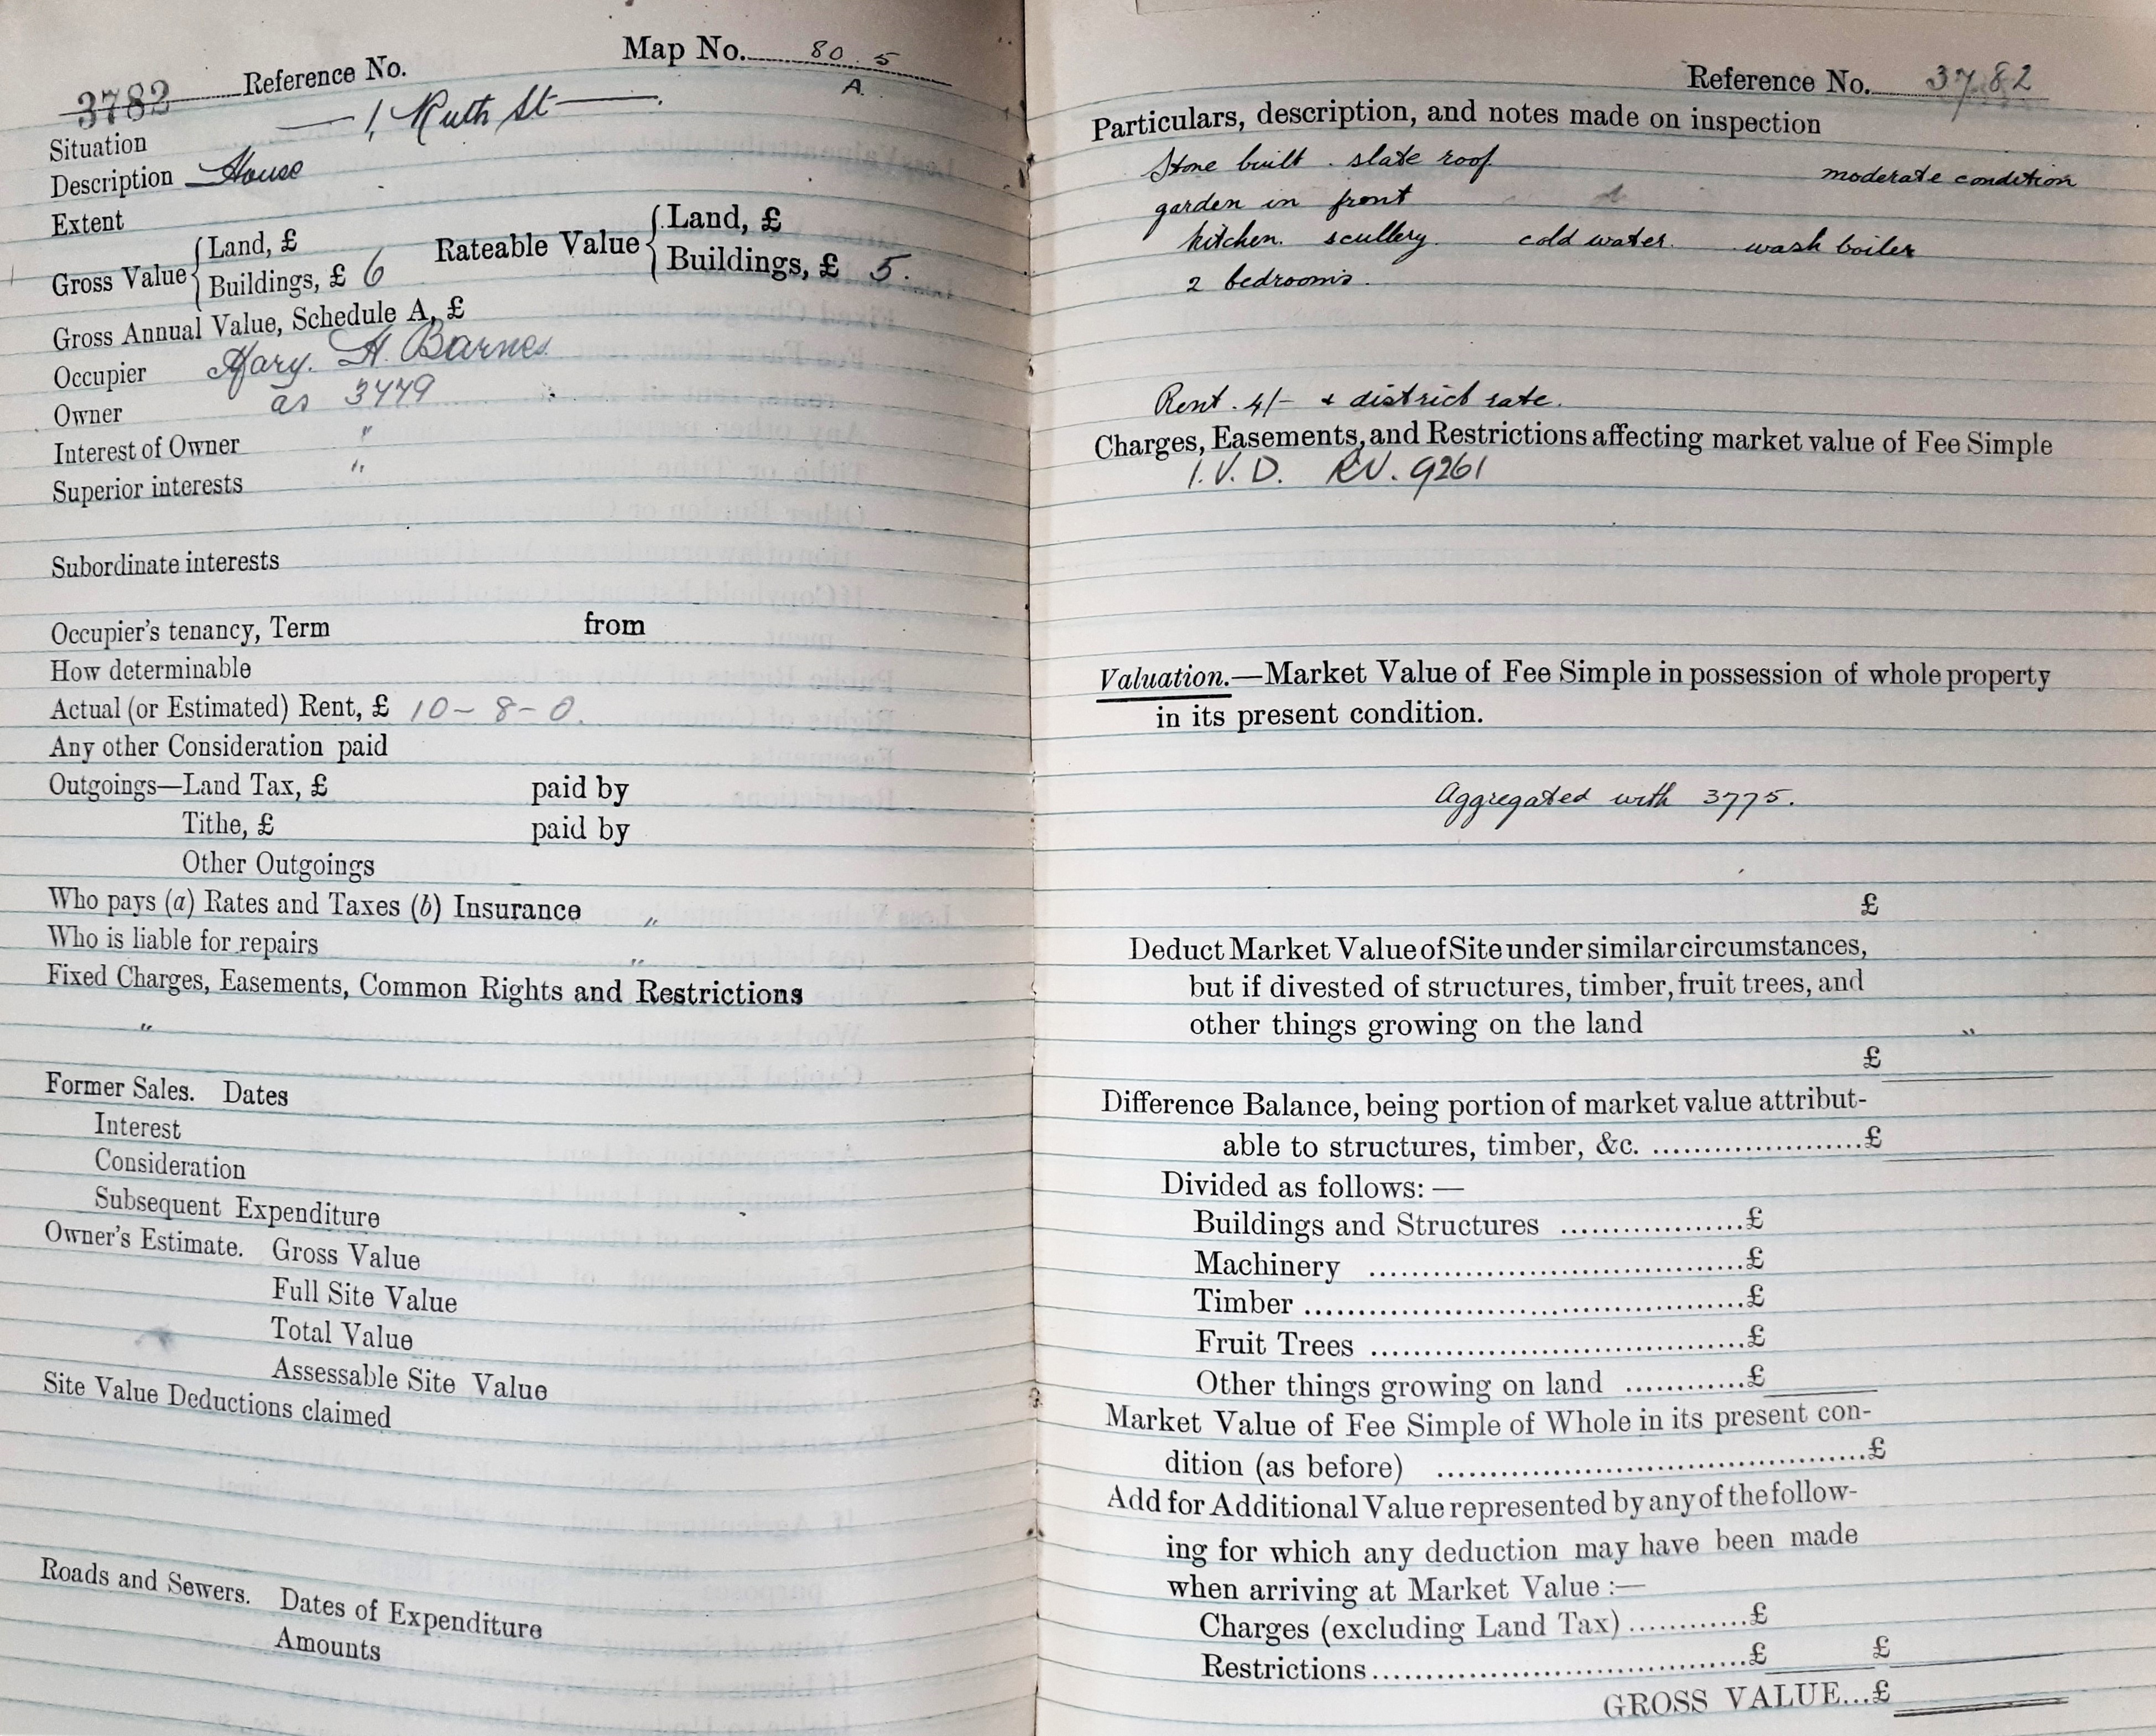 3782 Reference No. Map No. 80.5
A.
Situation 1, Ruth St
Description House
Extent
Gross Value { Land, £ Rateable Value { Land, £
Buildings, £ 6 Buildings, £ 5.
Gross Annual Value, Schedule A, £
Occupier Mary. H. Barnes
Owner as 3479
Interest of Owner "
Superior interests "
Subordinate interests
Occupier's tenancy, Term from
How determinable
Actual (or Estimated) Rent, £ 10-8-0.
Any other Consideration paid
Outgoings—Land Tax, £ paid by
Tithe, £ paid by
Other Outgoings
Who pays (a) Rates and Taxes (b) Insurance "
Who is liable for repairs "
Fixed Charges, Easements, Common Rights and Restrictions
"
Former Sales. Dates
Interest
Consideration
Subsequent Expenditure
Owner's Estimate. Gross Value
Full Site Value
Total Value
Assessable Site Value
Site Value Deductions claimed
Roads and Sewers. Dates of Expenditure
Amounts
Reference No. 3782
Particulars, description, and notes made on inspection
Stone built. slate roof. moderate condition
garden in front
kitchen. scullery. cold water. wash boiler
2 bedrooms.
Rent. 4/- & district rate.
Charges, Easements, and Restrictions affecting market value of Fee Simple
I.V.D. RV. 9261
Valuation.—Market Value of Fee Simple in possession of whole property
in its present condition.
Aggregated with 3775.
£
Deduct Market Value of Site under similar circumstances,
but if divested of structures, timber, fruit trees, and
other things growing on the land "
£
Difference Balance, being portion of market value attribut-
able to structures, timber, &c. ....................£
Divided as follows: —
Buildings and Structures .................£
Machinery ...................................£
Timber .........................................£
Fruit Trees ...................................£
Other things growing on land ...........£
Market Value of Fee Simple of Whole in its present con-
dition (as before) ........................................£
Add for Additional Value represented by any of the follow-
ing for which any deduction may have been made
when arriving at Market Value :—
Charges (excluding Land Tax) ...........£
Restrictions...................................£ £
GROSS VALUE...£